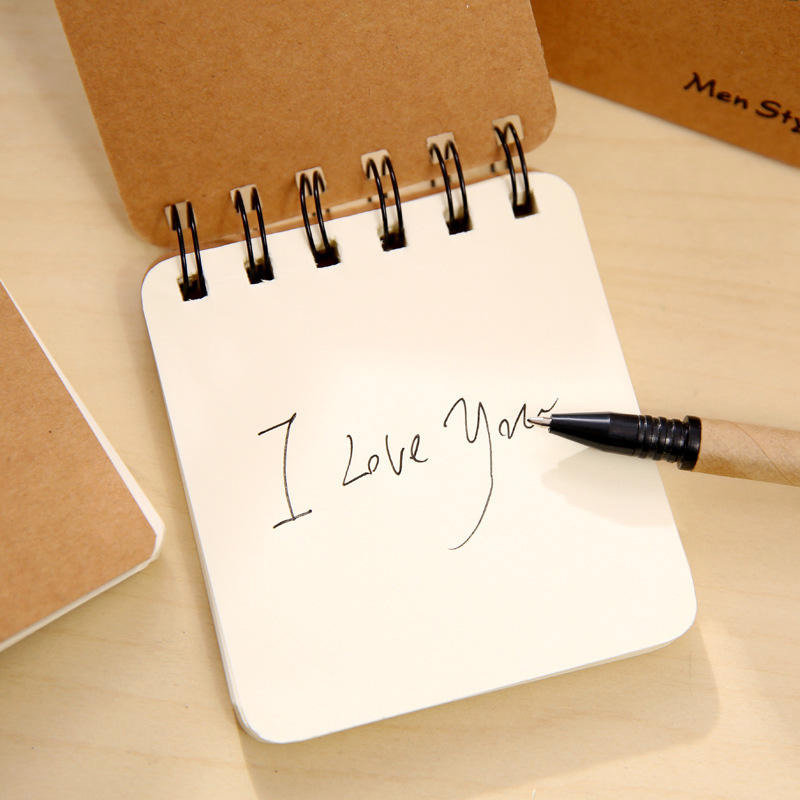 Men Sty
I Love You